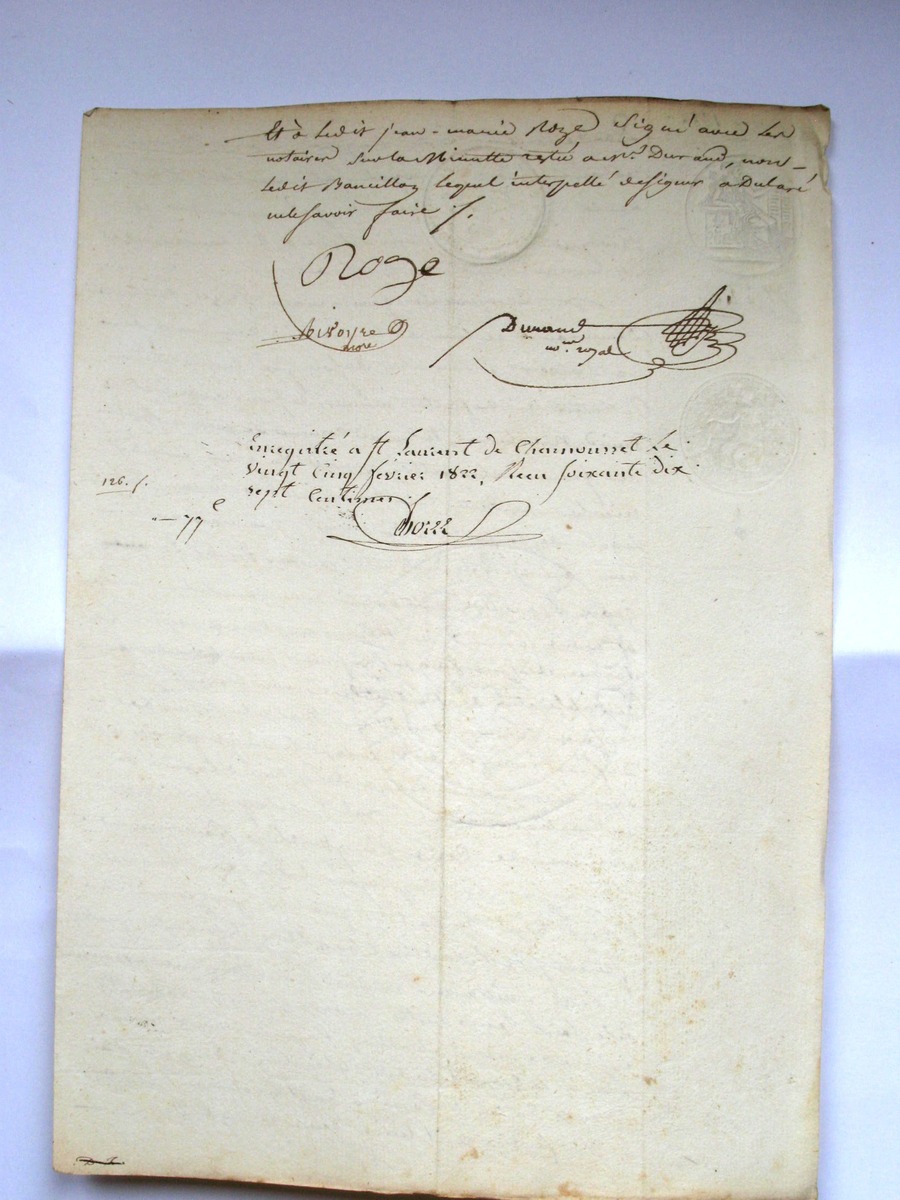 Et à ledit jean-marie Roze Signé avec les
notaires Sur la Minutte restée a Mre. Durand, non-
ledit Bancillon lequel interpellé de signer a Déclaré
ne le Savoir faire ./.
Roze
nore
Durand
nore. royal
Enregistré a St Laurent de Chamousset le
vingt Cinq février 1822, Reçu soixante dix
sept Centimes
126. f.
"— 77 c